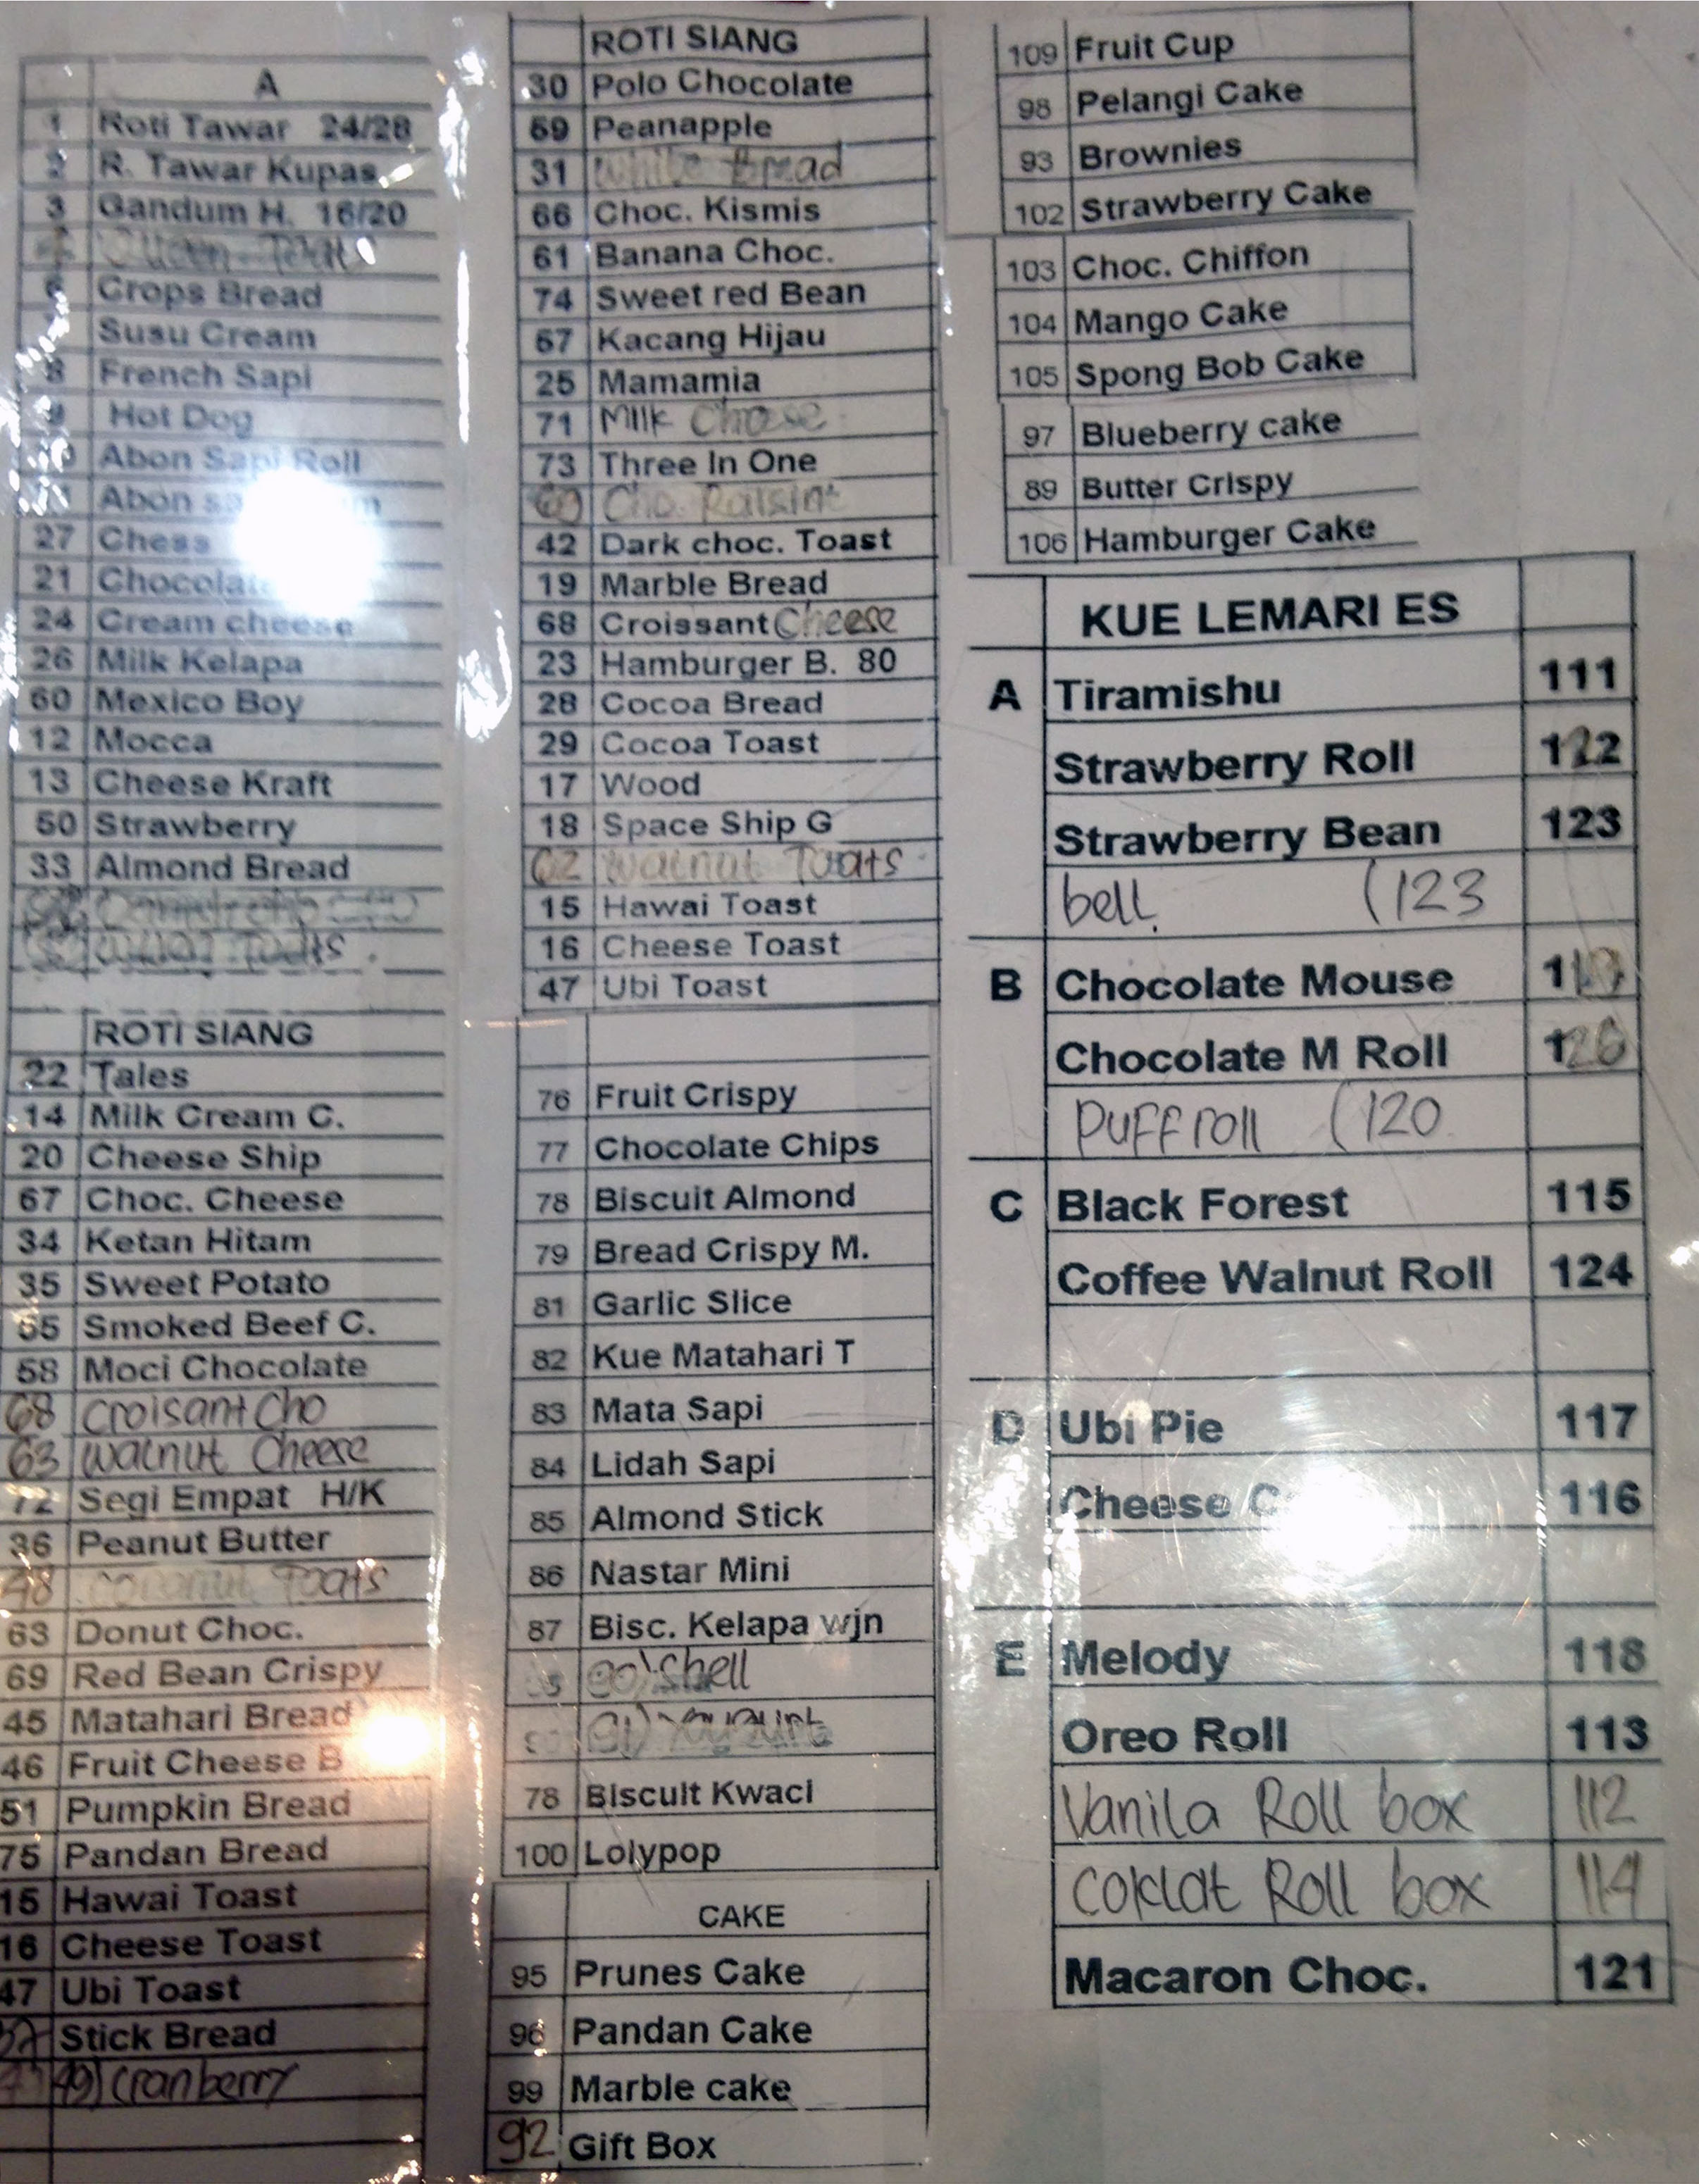 A
1 Roti Tawar 24/28
2 R. Tawar Kupas
3 Gandum H. 16/20
6 Crops Bread
Susu Cream
8 French Sapi
9 Hot Dog
10 Abon Sapi Roll
Abon
27 Chess
21
24 Cream cheese
26 Milk Kelapa
60 Mexico Boy
12 Mocca
13 Cheese Kraft
50 Strawberry
33 Almond Bread
ROTI SIANG
22 Tales
14 Milk Cream C.
20 Cheese Ship
67 Choc. Cheese
34 Ketan Hitam
35 Sweet Potato
55 Smoked Beef C.
58 Moci Chocolate
68 Croisant Cho
63 Walnut Cheese
72 Segi Empat H/K
36 Peanut Butter
48 Coconut Toats
63 Donut Choc.
69 Red Bean Crispy
45 Matahari Bread
46 Fruit Cheese B
51 Pumpkin Bread
75 Pandan Bread
15 Hawai Toast
16 Cheese Toast
47 Ubi Toast
Stick Bread
49) cranberry
ROTI SIANG
30 Polo Chocolate
59 Peanapple
31 White Bread
66 Choc. Kismis
61 Banana Choc.
74 Sweet red Bean
57 Kacang Hijau
25 Mamamia
71 Milk Cheese
73 Three In One
Cho. Raisint
42 Dark choc. Toast
19 Marble Bread
68 Croissant Cheese
23 Hamburger B. 80
28 Cocoa Bread
29 Cocoa Toast
17 Wood
18 Space Ship G
62 Walnut Toats
15 Hawai Toast
16 Cheese Toast
47 Ubi Toast
76 Fruit Crispy
77 Chocolate Chips
78 Biscuit Almond
79 Bread Crispy M.
81 Garlic Slice
82 Kue Matahari T
83 Mata Sapi
84 Lidah Sapi
85 Almond Stick
86 Nastar Mini
87 Bisc. Kelapa wjn
shell
78 Biscuit Kwaci
100 Lolypop
CAKE
95 Prunes Cake
96 Pandan Cake
99 Marble cake
92 Gift Box
109 Fruit Cup
98 Pelangi Cake
93 Brownies
102 Strawberry Cake
103 Choc. Chiffon
104 Mango Cake
105 Spong Bob Cake
97 Blueberry cake
89 Butter Crispy
106 Hamburger Cake
KUE LEMARI ES
A Tiramishu 111
Strawberry Roll 122
Strawberry Bean 123
bell (123
B Chocolate Mouse
Chocolate M Roll 126
Puff roll (120
C Black Forest 115
Coffee Walnut Roll 124
D Ubi Pie 117
Cheese 116
E Melody 118
Oreo Roll 113
Vanila Roll box 112
Coklat Roll box 114
Macaron Choc. 121